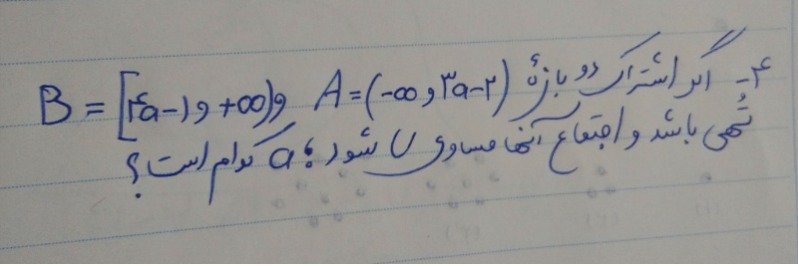 ۴- اگر اشتراک دو بازهٔ A = (-∞ و ۳a-۲) و B = [۴a-۱ و +∞)
تُهی باشد و اجتماع آنها مساوی U شود؛ a کدام است؟